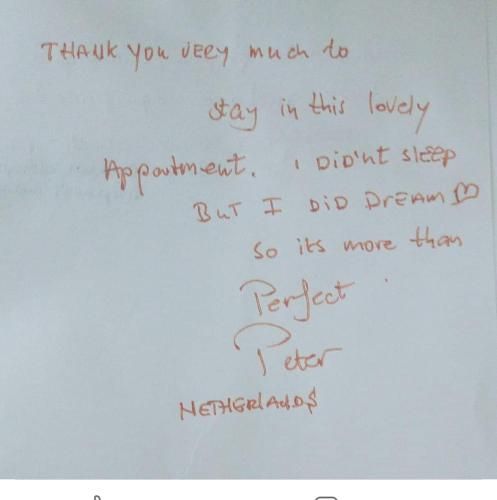 THANK YOU VERY much to
stay in this lovely
Appartment. I DiD'nt sleep
BuT I DiD DREAM
so its more than
Perfect.
Peter
NETHERlANDS